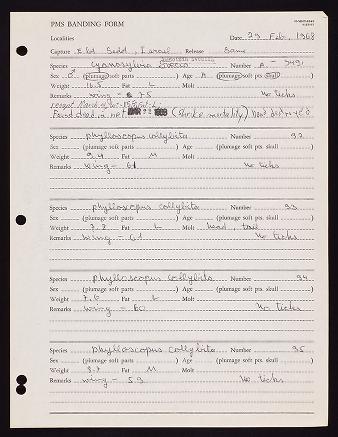 PMS BANDING FORM
Localities Date 29 Feb, 1968
Capture Eld Sedd, Israel Release Same
Species Cyanosylvia svecica Number A - 3491
Sex ♂ (plumage) soft parts Age A (plumage) soft pts. skull)
Weight 16.5 Fat L Molt
Remarks wing - 75 No ticks
Found dead in net
Species phylloscopus collybita Number 92
Sex (plumage soft parts) Age (plumage soft pts. skull)
Weight 9.4 Fat M Molt
Remarks wing - 61 No ticks
Species phylloscopus collybita Number 93
Sex (plumage soft parts) Age (plumage soft pts. skull)
Weight 7.8 Fat L Molt head, tail
Remarks wing - 61 No ticks
Species phylloscopus collybita Number 94
Sex (plumage soft parts) Age (plumage soft pts. skull)
Weight 7.6 Fat L Molt
Remarks wing - 60 No ticks
Species phylloscopus collybita Number 95
Sex (plumage soft parts) Age (plumage soft pts. skull)
Weight 8.7 Fat M Molt
Remarks wing - 59 No ticks